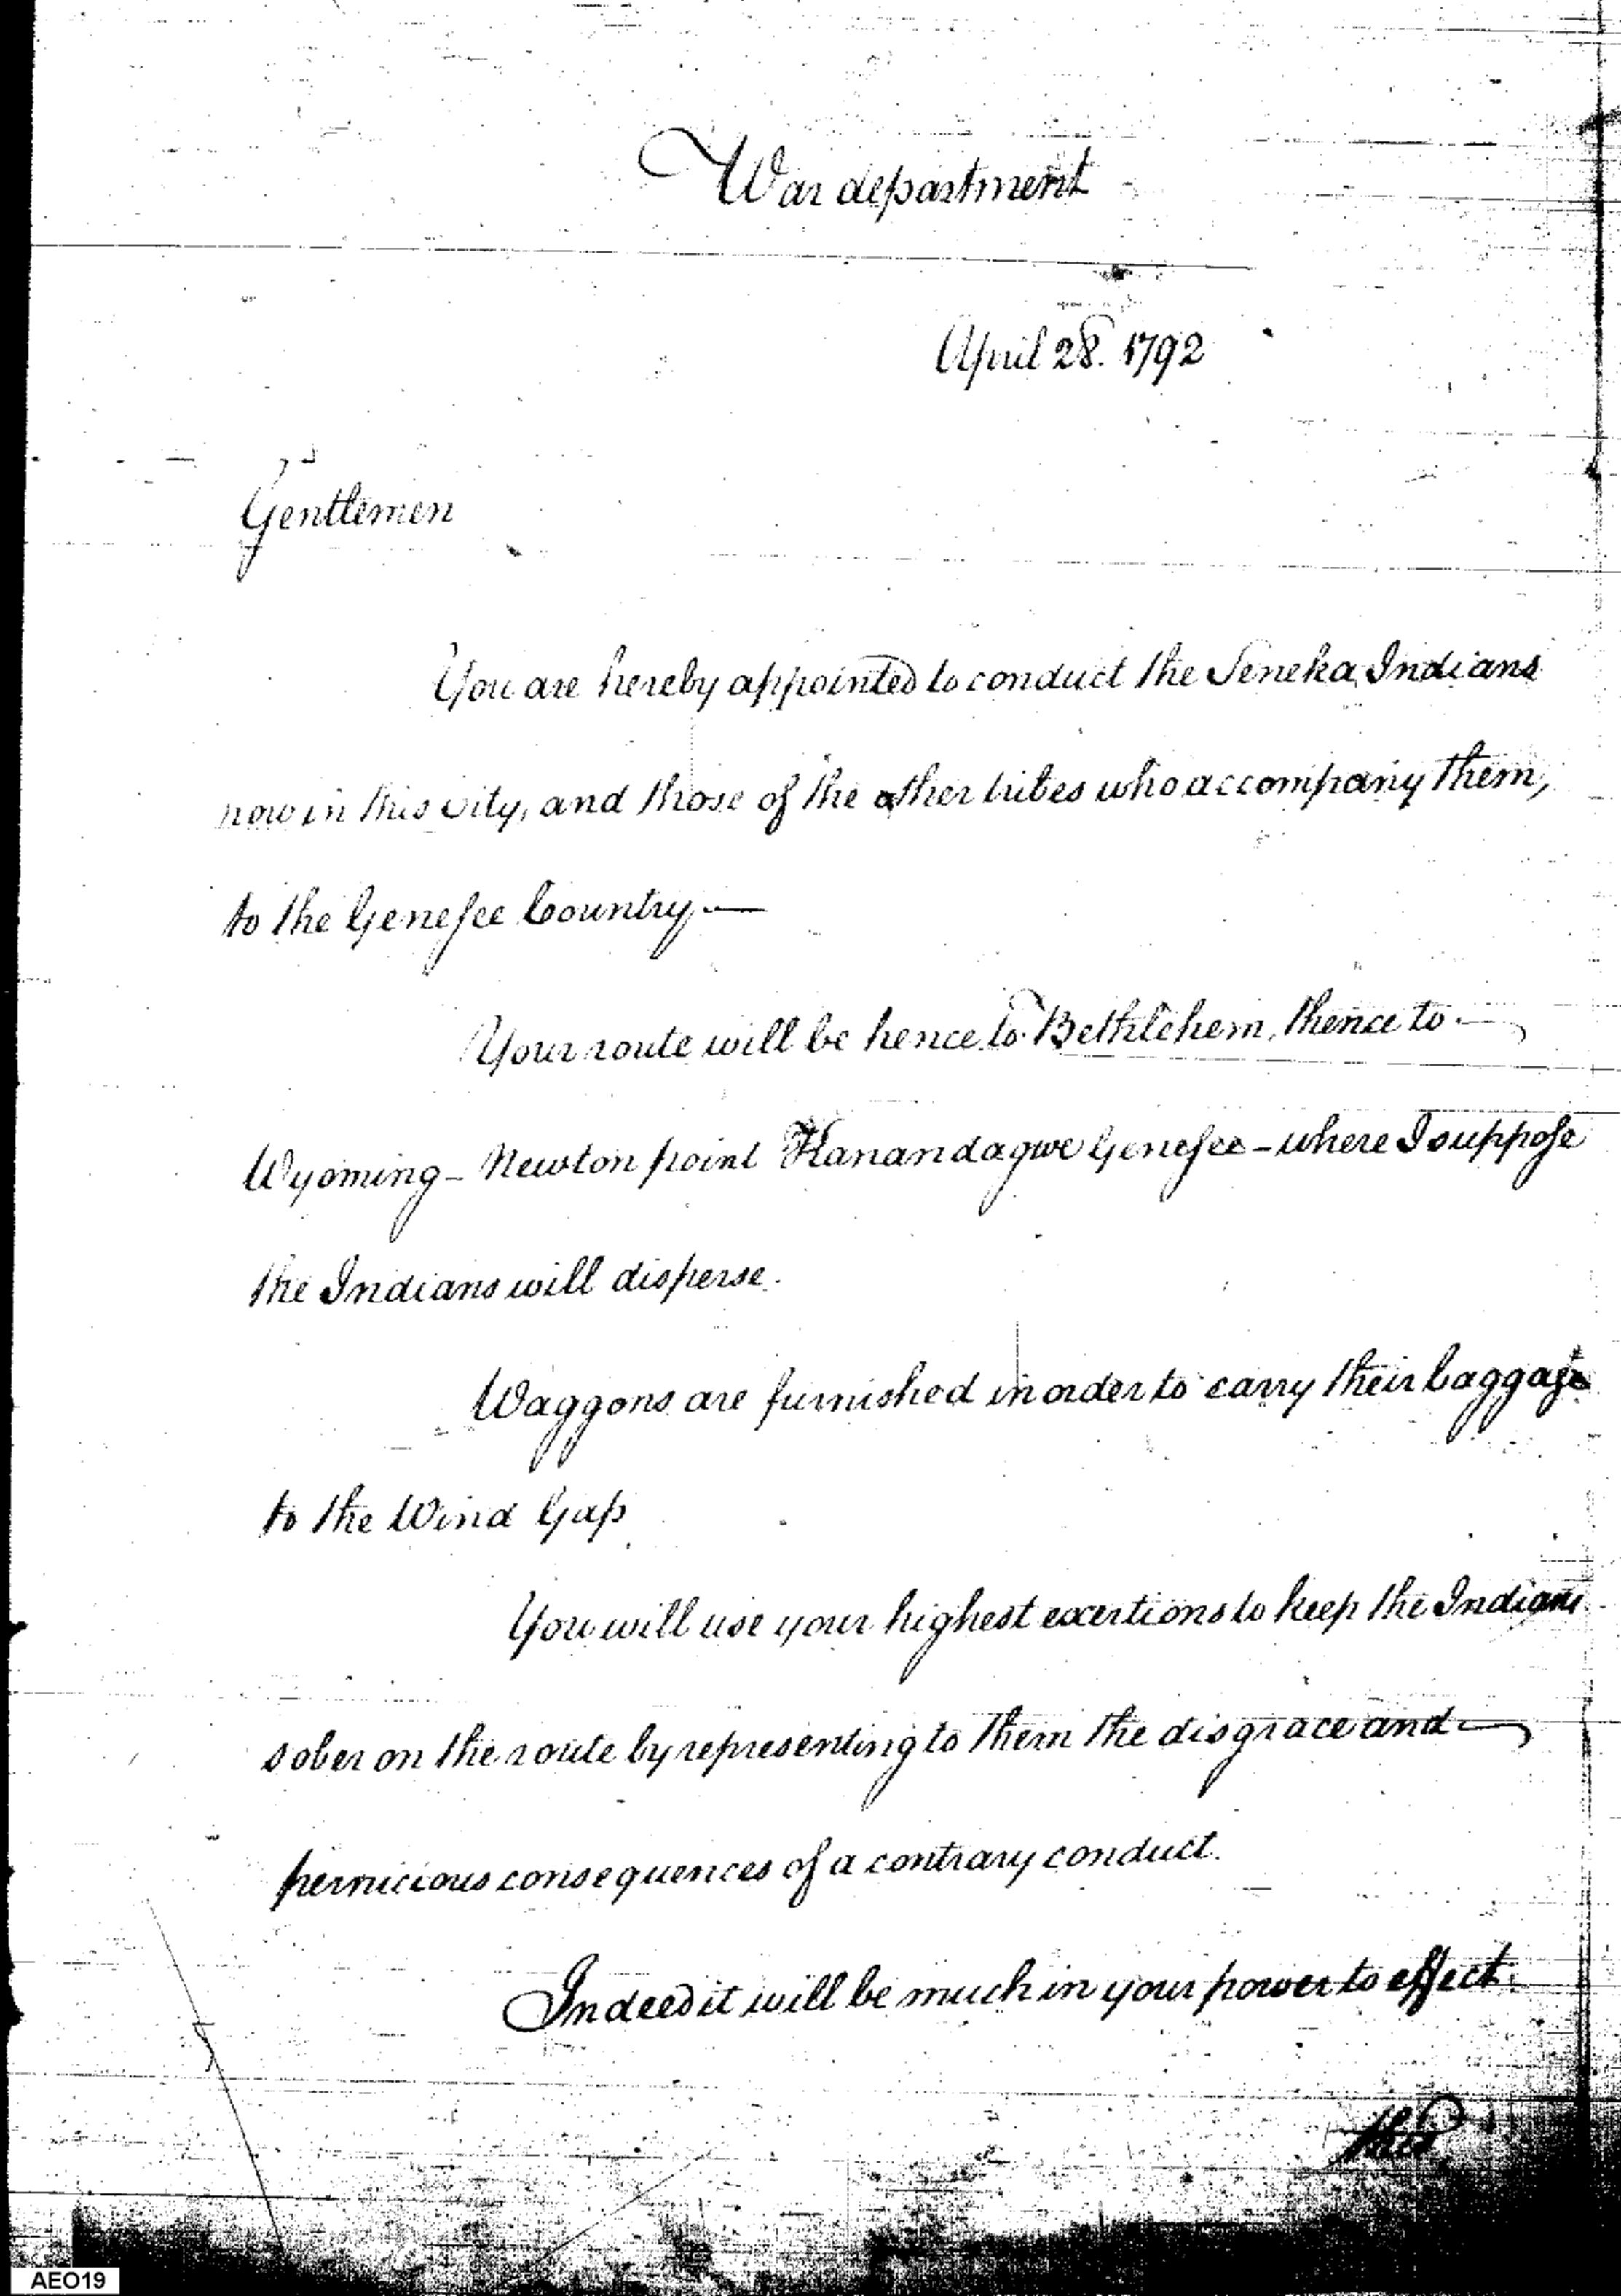 War department
April 28. 1792
Gentlemen
You are hereby appointed to conduct the Seneka Indians
now in this City, and those of the other tribes who accompany them,
to the Geneſee Country.—
Your route will be hence to Bethlehem, thence to—
Wyoming - Newton point Kanandagwe Geneſee - where I suppoſe
the Indians will disperse.
Waggons are furnished in order to carry their baggage
to the Wind Gap
You will use your highest exertions to keep the Indians
sober on the route by representing to them the disgrace and—
pernicious consequences of a contrary conduct.
Indeed it will be much in your power to effect
this
AEO19